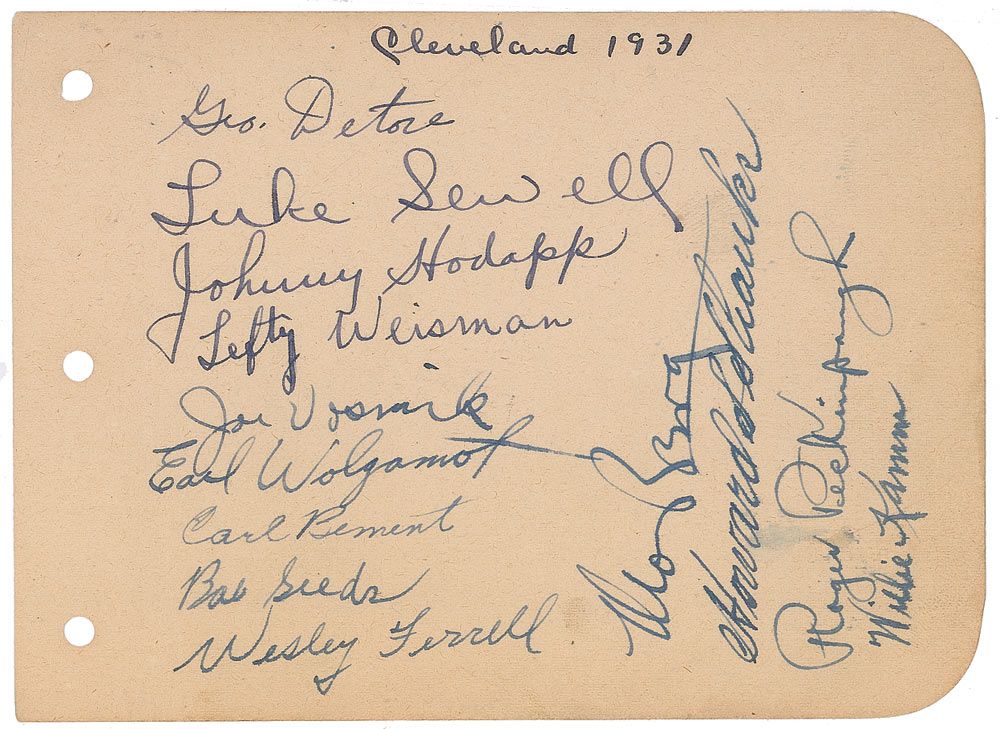 Cleveland 1931
Geo. Detore
Luke Sewell
Johnny Hodapp
Lefty Weisman
Joe Vosmik
Earl Wolgamot
Carl Bement
Bob Seeds
Wesley Ferrell.
Moe Berg
Howard S Shanks
Roger Peckinpaugh
Willie Kamm